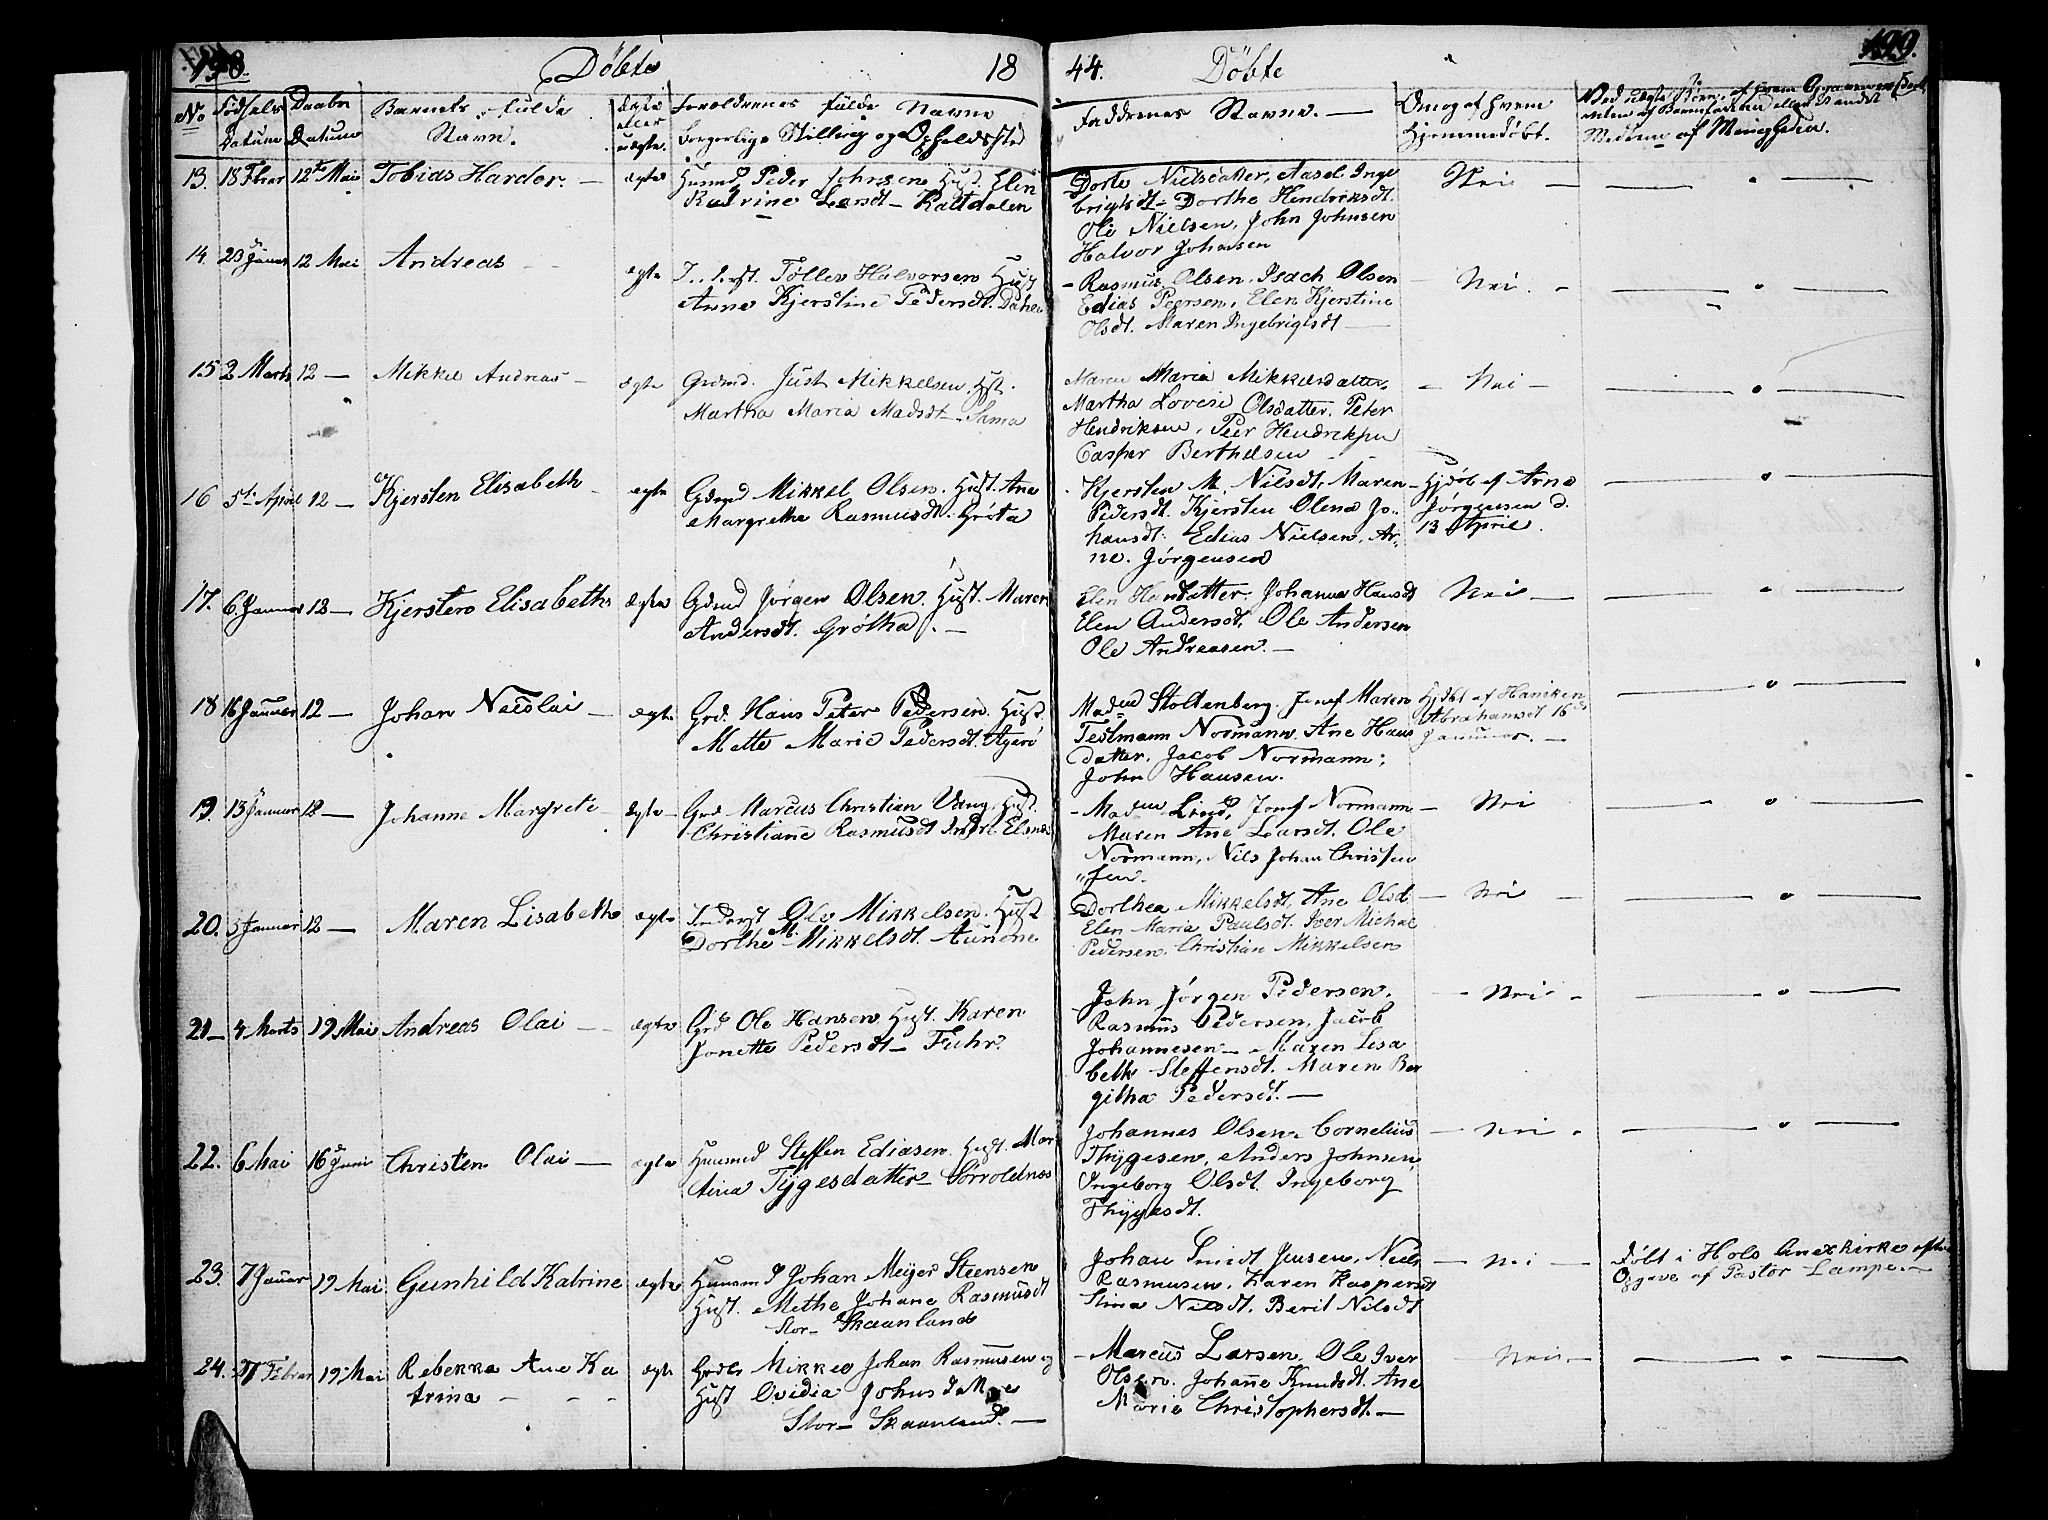 198. Döbte 18
44. Döbte 199.
No Födsels Datum Daabs Datum Barnets fulde Navn. ægte eller uægte. Forældrenes fulde Navne Borgerlige Stilling og Opholdssted
Faddrenes Navne. — Om og af hvem Hjemmedöbt.
Medlem af Menigheden.
13. 18 Febrar 12te Mai Tobias Harder. — ægte Husmd Peder Johnsen Hust. Elen
Katrine Larsdt — Kaltdalen
Dorte Nielsdatter, Aasel Inge
brigtsdt — Dorthe Hendriksdt.
Ole Nielsen, John Johnsen
Halvor Johnsen
Nei —
14. 23 Januar 12 Mai Andreas — ægte Tollev Halvorsen Hust
Anne Kjerstine Pedersdt. Dahlen
— Rasmus Olsen, Isach Olsen
Edias Peersen, Elen Kjerstine
Olsdt. Maren Ingebrigtsdt —
Nei. —
15 2 Marts 12 — Mikkel Andreas — ægte Grdmd. Just Mikkelsen. Hst.
Martha Maria Madsdt — Sama
Maren Maria Mikkelsdatter,
Martha Lovise Olsdatter. Peter
Hendriksen, Peer Hendriksen
Casper Berthelsen
— Nei —
16 5te April 12 — Kjersten Elisabeth — ægte Gdmd Mikkel Olsen. Hust. Ane
Margrethe Rasmusdt. Gröta
Kjersten M. Nilsdt, Maren
Pedersdt. Kjersten Olena Jo-
hansdt. Edias Nielsen, Ar-
ne. Jörgensen
— Hjdöb af Arne
Jörgensen d.
13 April.
17. 6 Januar 12 — Kjersten Elisabeth ægte Gdmd Jörgen Olsen. Hust. Maren
Andersdt. Grötha. —
Elen Hansdatter, Johanna Hansdt
Elen Andersdt, Ole Andersen
Ole Andreasen. —
Nei —
18 16 Januar 12 — Johan Nicolai — ægte Grd. Hans Peter Pedersen. Hust.
Mette Marie Pedersdt. Agerö
Madme Stoltenberg. Jomf Maren
Tedtmann Normann. Ane Hans
datter, Jacob Normann;
John Hansen.
Hjdbt af Haniken
Abrahamsdt 16de
Januar. —
19. 13 Januar 12 — Johanne Margrete — ægte — Grd Marcus Christian Vang. Hust.
Christiane Rasmusdt Indre Elsnes
— Madme Lind, Jomf Normann
Maren Ane Larsdt. Ole
Normann, Nils Johan Christen
sen.
— Nei
20. 5 Januar 12 — Maren Lisabeth ægte Inderst Ole Mikkelsen. Hust
Dorthe M. Mikkelsdt. Aunene
Dorthea Mikkelsdt, Ane Olsd
Elen Maria Paulsdt. Iver Michael
Pedersen. Christian Mikkelsen
— Nei —
21 — 4 Marts 19 Mai Andreas Olai — ægte Grd Ole Hansen Hust. Karen
Jonette Pedersdt — Fuhr.
John Jörgen Pedersen.
Rasmus Pedersen, Jacob
Johannesen — Maren Lisa
beth Steffensdt. Maren Ber
githa Pedersdt. —
— Nei —
22. 6 Mai 16 Juni Christen Olai — ægte Huusmd Steffen Ediasen. Hust. Mar
tina Tygesdatter — Sörroldnes
Johannes Olsen. Cornelius
Thygesen, Anders Johnsen,
Ingeborg Olsdt. Ingeborg
Thygesdt.
— Nei —
23. 7 Januar 19 Mai Gunhild Katrine ægte Huusmd Johan Meyer Steensen
Hust. Methe Johane Rasmusdt
Stor — Skaanland
Johan Smidt Jensen, Niels
Rasmusen, Karen Kaspersdt
Stina Nilsdt. Beril Nilsdt
— Nei — Döbt i Hols Anexkirke efter
Opgave af Pastor Lampe. —
24. 27 Febrar 19 Mai Rebekka Ane Ka
trina — — — ægte Mikkel Johan Rasmusen og
Hust Ovidia Johnsdatter
Stor — Skaanland. —
— Marcus Larsen, Ole Iver
Olsen. Johanne Knudsdt. Ane
Marie Christophersdt. —
Nei —